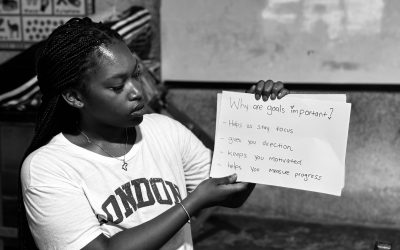 Why are goals important?
- Helps us stay focus
- gives you direction
- Keeps you motivated
- helps you measure progress
LONDON